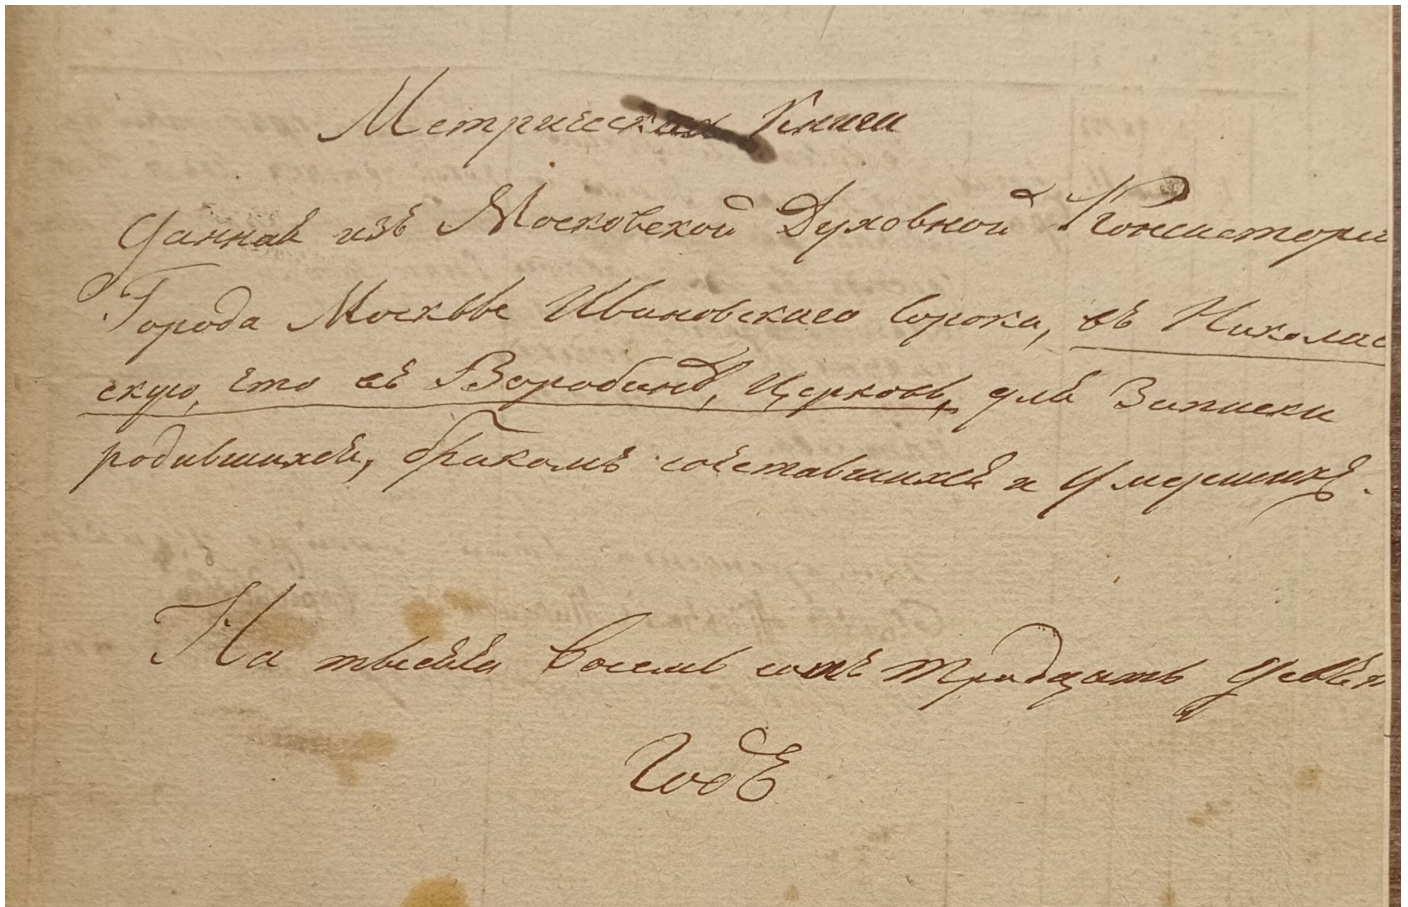 Метрическая Книга
Данная изъ Московской Духовной Консистори
Города Москвы Ивановскаго Сорока, въ Николаев
скую, что въ Воробинѣ, Церковь, для Записки
родившихся, бракомъ сочетавшихся и Умершихъ.
На тысяча восемь сотъ тридцать девят
Годъ